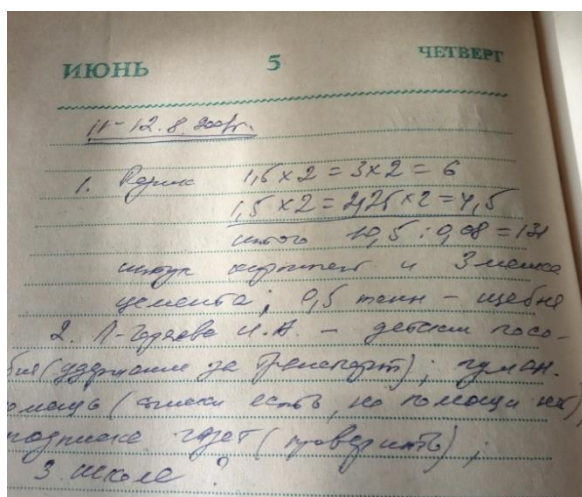 ИЮНЬ 5 ЧЕТВЕРГ
11-12.8.
1. 1,5 x 2 = 3 x 2 = 6
1,5 x 2 = 2,25 x 2 = 4,5
итого 10,5 : 0,08 = 131
штук и 3 мешка
цемента; 0,5 тонн - щебня
2. - детский посо-
бия (удержание за транспорт); гуман.
помощь (списки есть, но помощи нет)
подписка газет (проверить);
3. школе ?